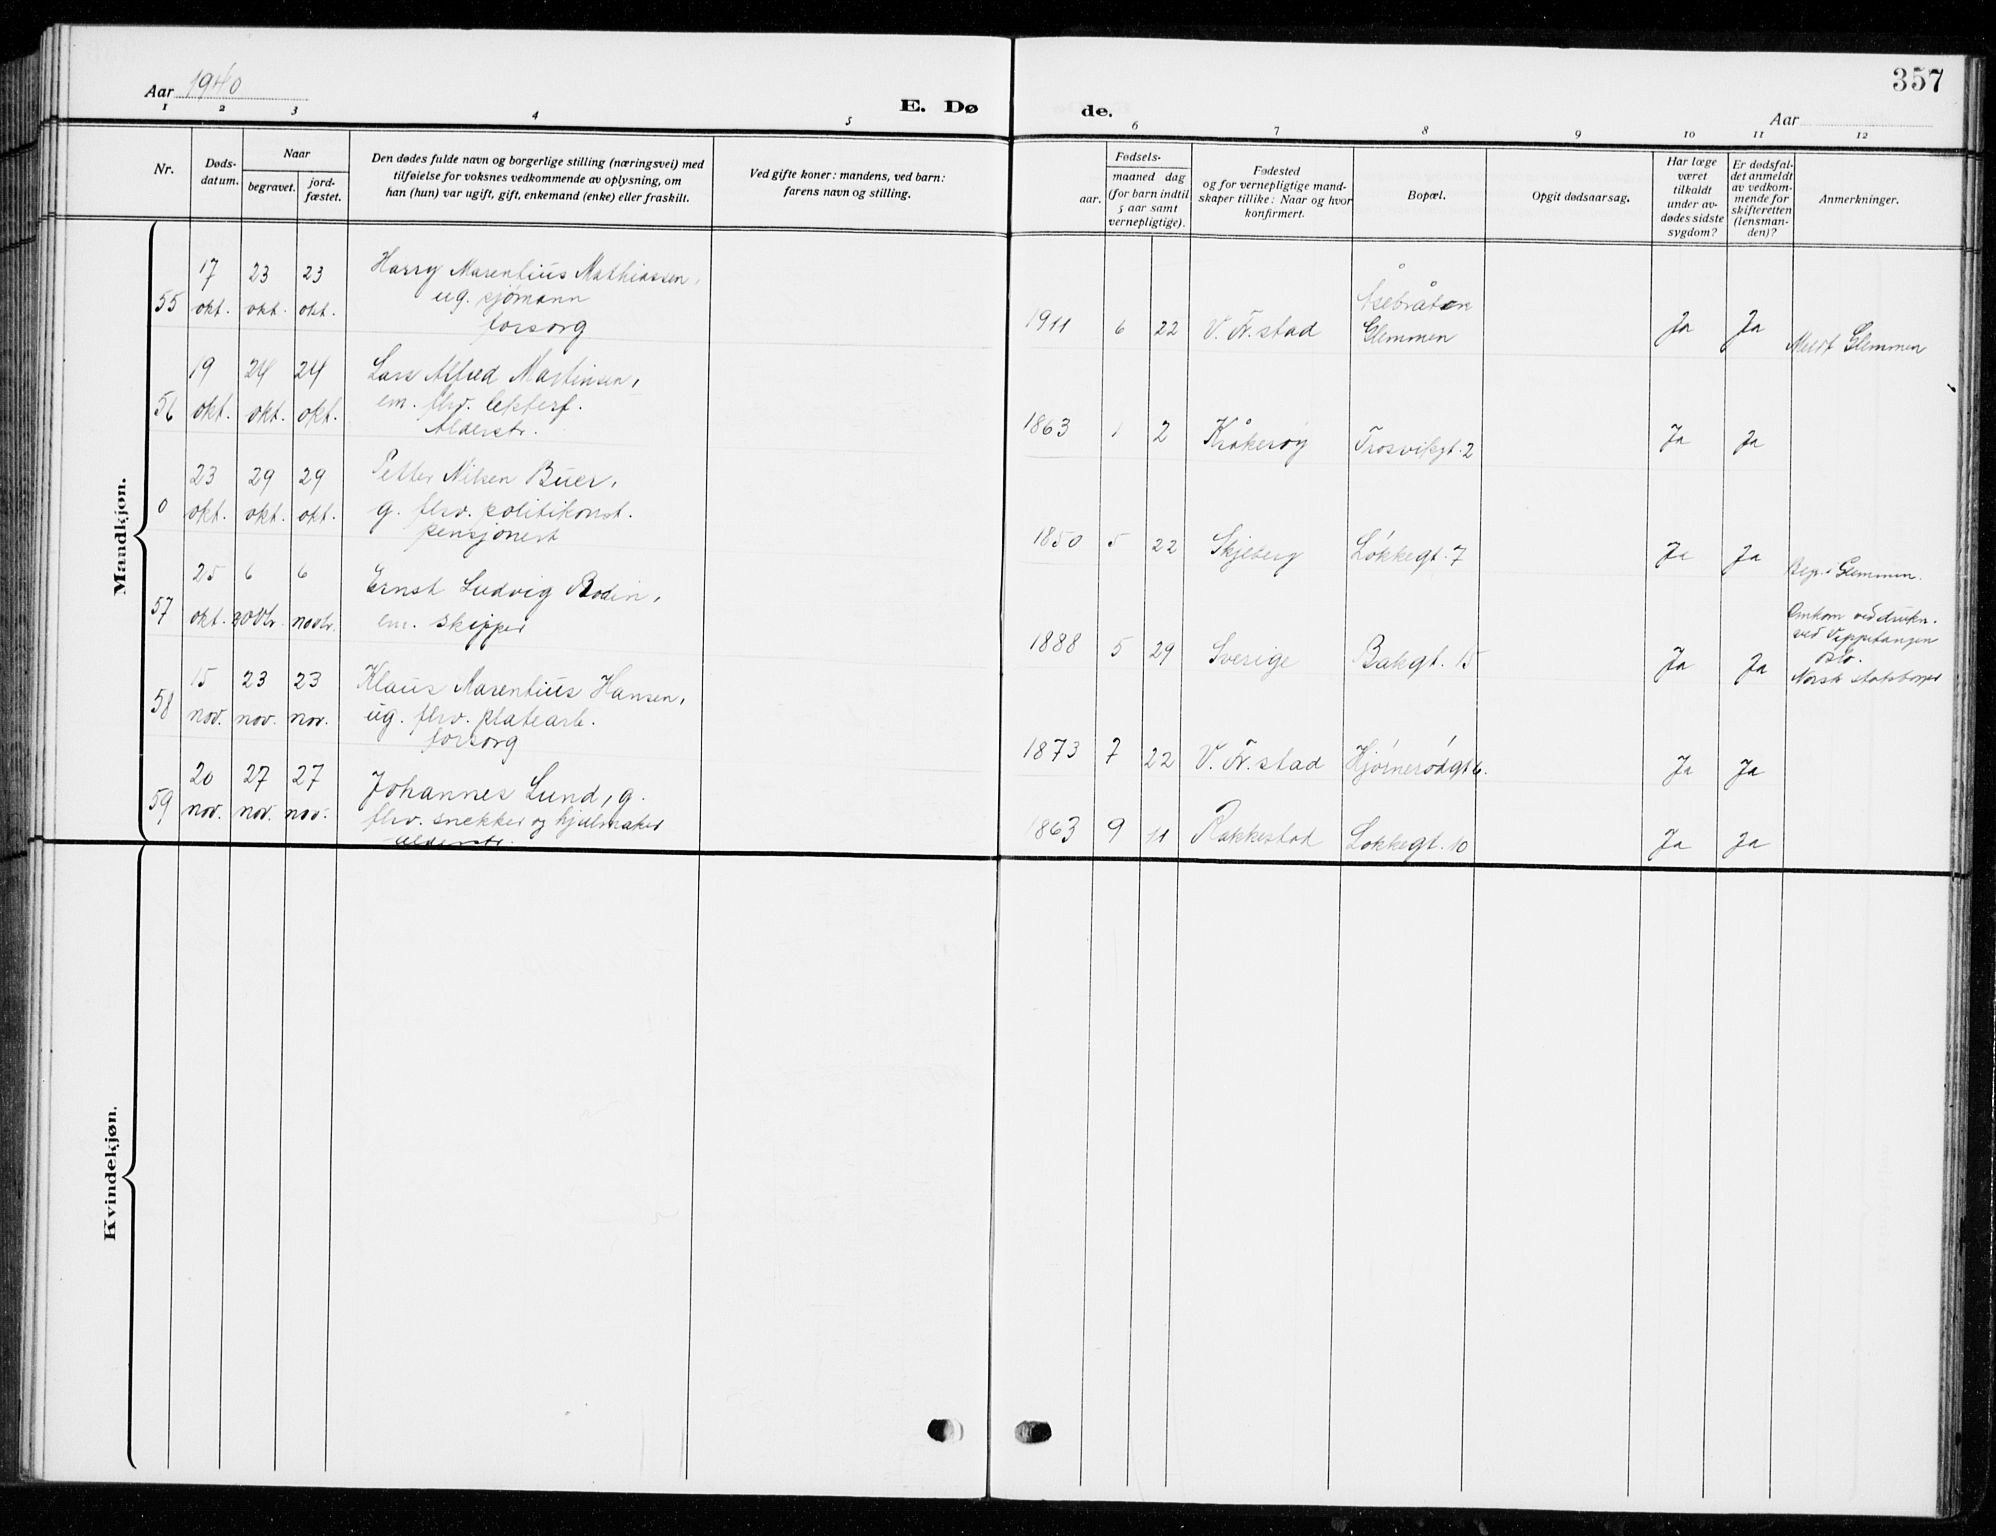 357
Aar 1940
E. Dø de.
Aar
1 2 3 4 5 6 7 8 9 10 11 12
Nr.
Døds-
datum.
Naar
begravet.
jord-
fæstet.
Den dødes fulde navn og borgerlige stilling (næringsvei) med
tilføielse for voksnes vedkommende av oplysning, om
han (hun) var ugift, gift, enkemand (enke) eller fraskilt.
Ved gifte koner: mandens, ved barn:
farens navn og stilling.
Fødsels-
aar.
maaned dag
(for barn indtil
5 aar samt
vernepligtige).
Fødested
og for vernepligtige mand-
skaper tillike: Naar og hvor
konfirmert.
Bopæl.
Opgit dødsaarsag.
Har læge
været
tilkaldt
under av-
dødes sidste
sygdom?
Er dødsfal-
det anmeldt
av vedkom-
mende for
skifteretten
(lensman-
den)?
Anmerkninger.
Mandkjøn.
55
17 okt.
23 okt.
23 okt.
Harry Marentius Mathiassen,
ug. sjømann
forsorg
1911 6 22
V. Fr.stad
Åsebråten
Glemmen
Ja
Ja
Meldt Glemmen
56
19 okt.
24 okt.
24 okt.
Lars Alfred Martinsen,
em. fhv.
Alderstr.
1863 1 2
Kråkerøy
Trosvikgt. 2
Ja
Ja
0
23 okt.
29 okt.
29 okt.
Petter Nilsen Buer,
g. fhv. politikonst.
pensjonert
1850 5 22
Skjeberg
Løkkegt. 7
Ja
Ja
Beg. i Glemmen.
57
25 okt.
6 novbr.
6 novbr.
Ernst Ludvig Bodin,
em. skipper
1888 5 29
Sverige
Bakgt. 15
Ja
Ja
Omkom ved drukn.
ved Vippetangen
Oslo.
Norsk statsborger
58
15 nov.
23 nov.
23 nov.
Klaus Marentius Hansen,
ug. fhv. platearb.
forsorg
1873 7 22
V. Fr.stad
Hjørnerødgt 6.
Ja
Ja
59
20 nov.
27 nov.
27 nov.
Johannes Lund, g.
fhv. snekker og hjulmaker
alderstr.
1863 9 11
Rakkestad
Løkkegt. 10
Ja
Ja
Kvindekjøn.